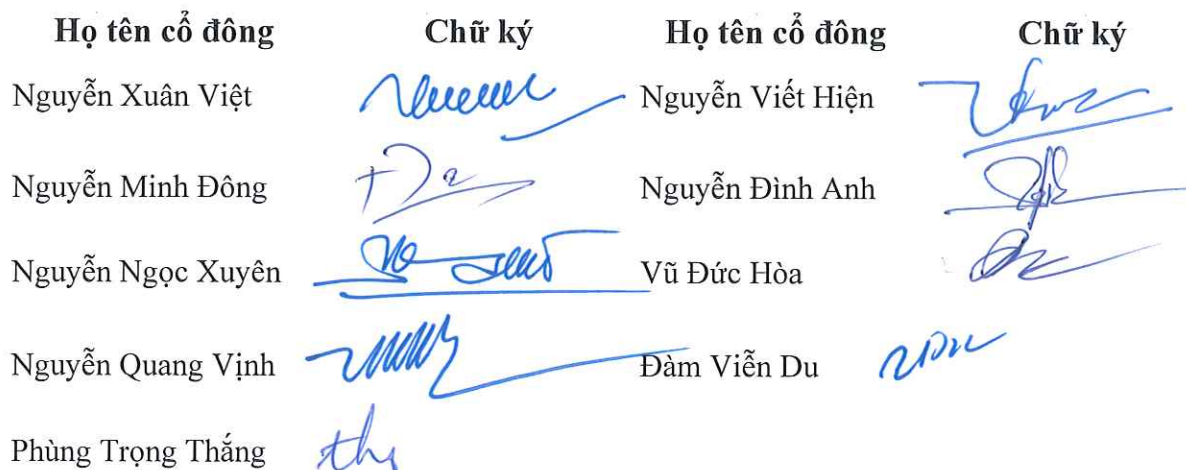 Họ tên cổ đông Chữ ký Họ tên cổ đông Chữ ký
Nguyễn Xuân Việt Nguyễn Viết Hiện
Nguyễn Minh Đông Nguyễn Đình Anh
Nguyễn Ngọc Xuyên Vũ Đức Hòa
Nguyễn Quang Vịnh Đàm Viễn Du
Phùng Trọng Thắng